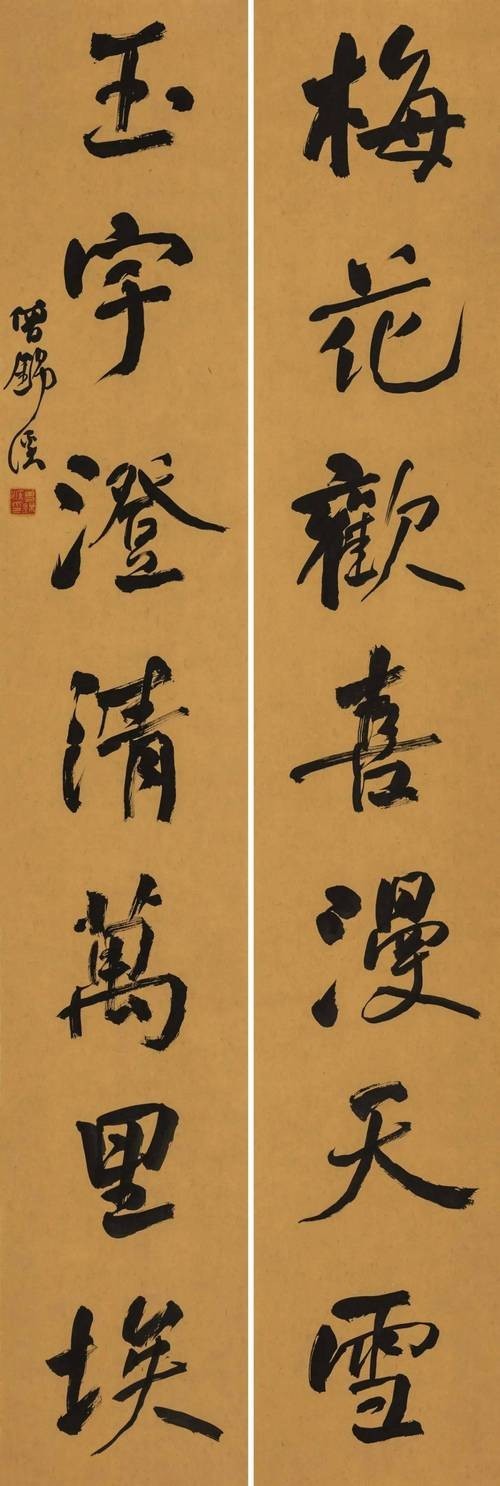 梅花歡喜漫天雪
玉宇澄清萬里埃
曾錦溪